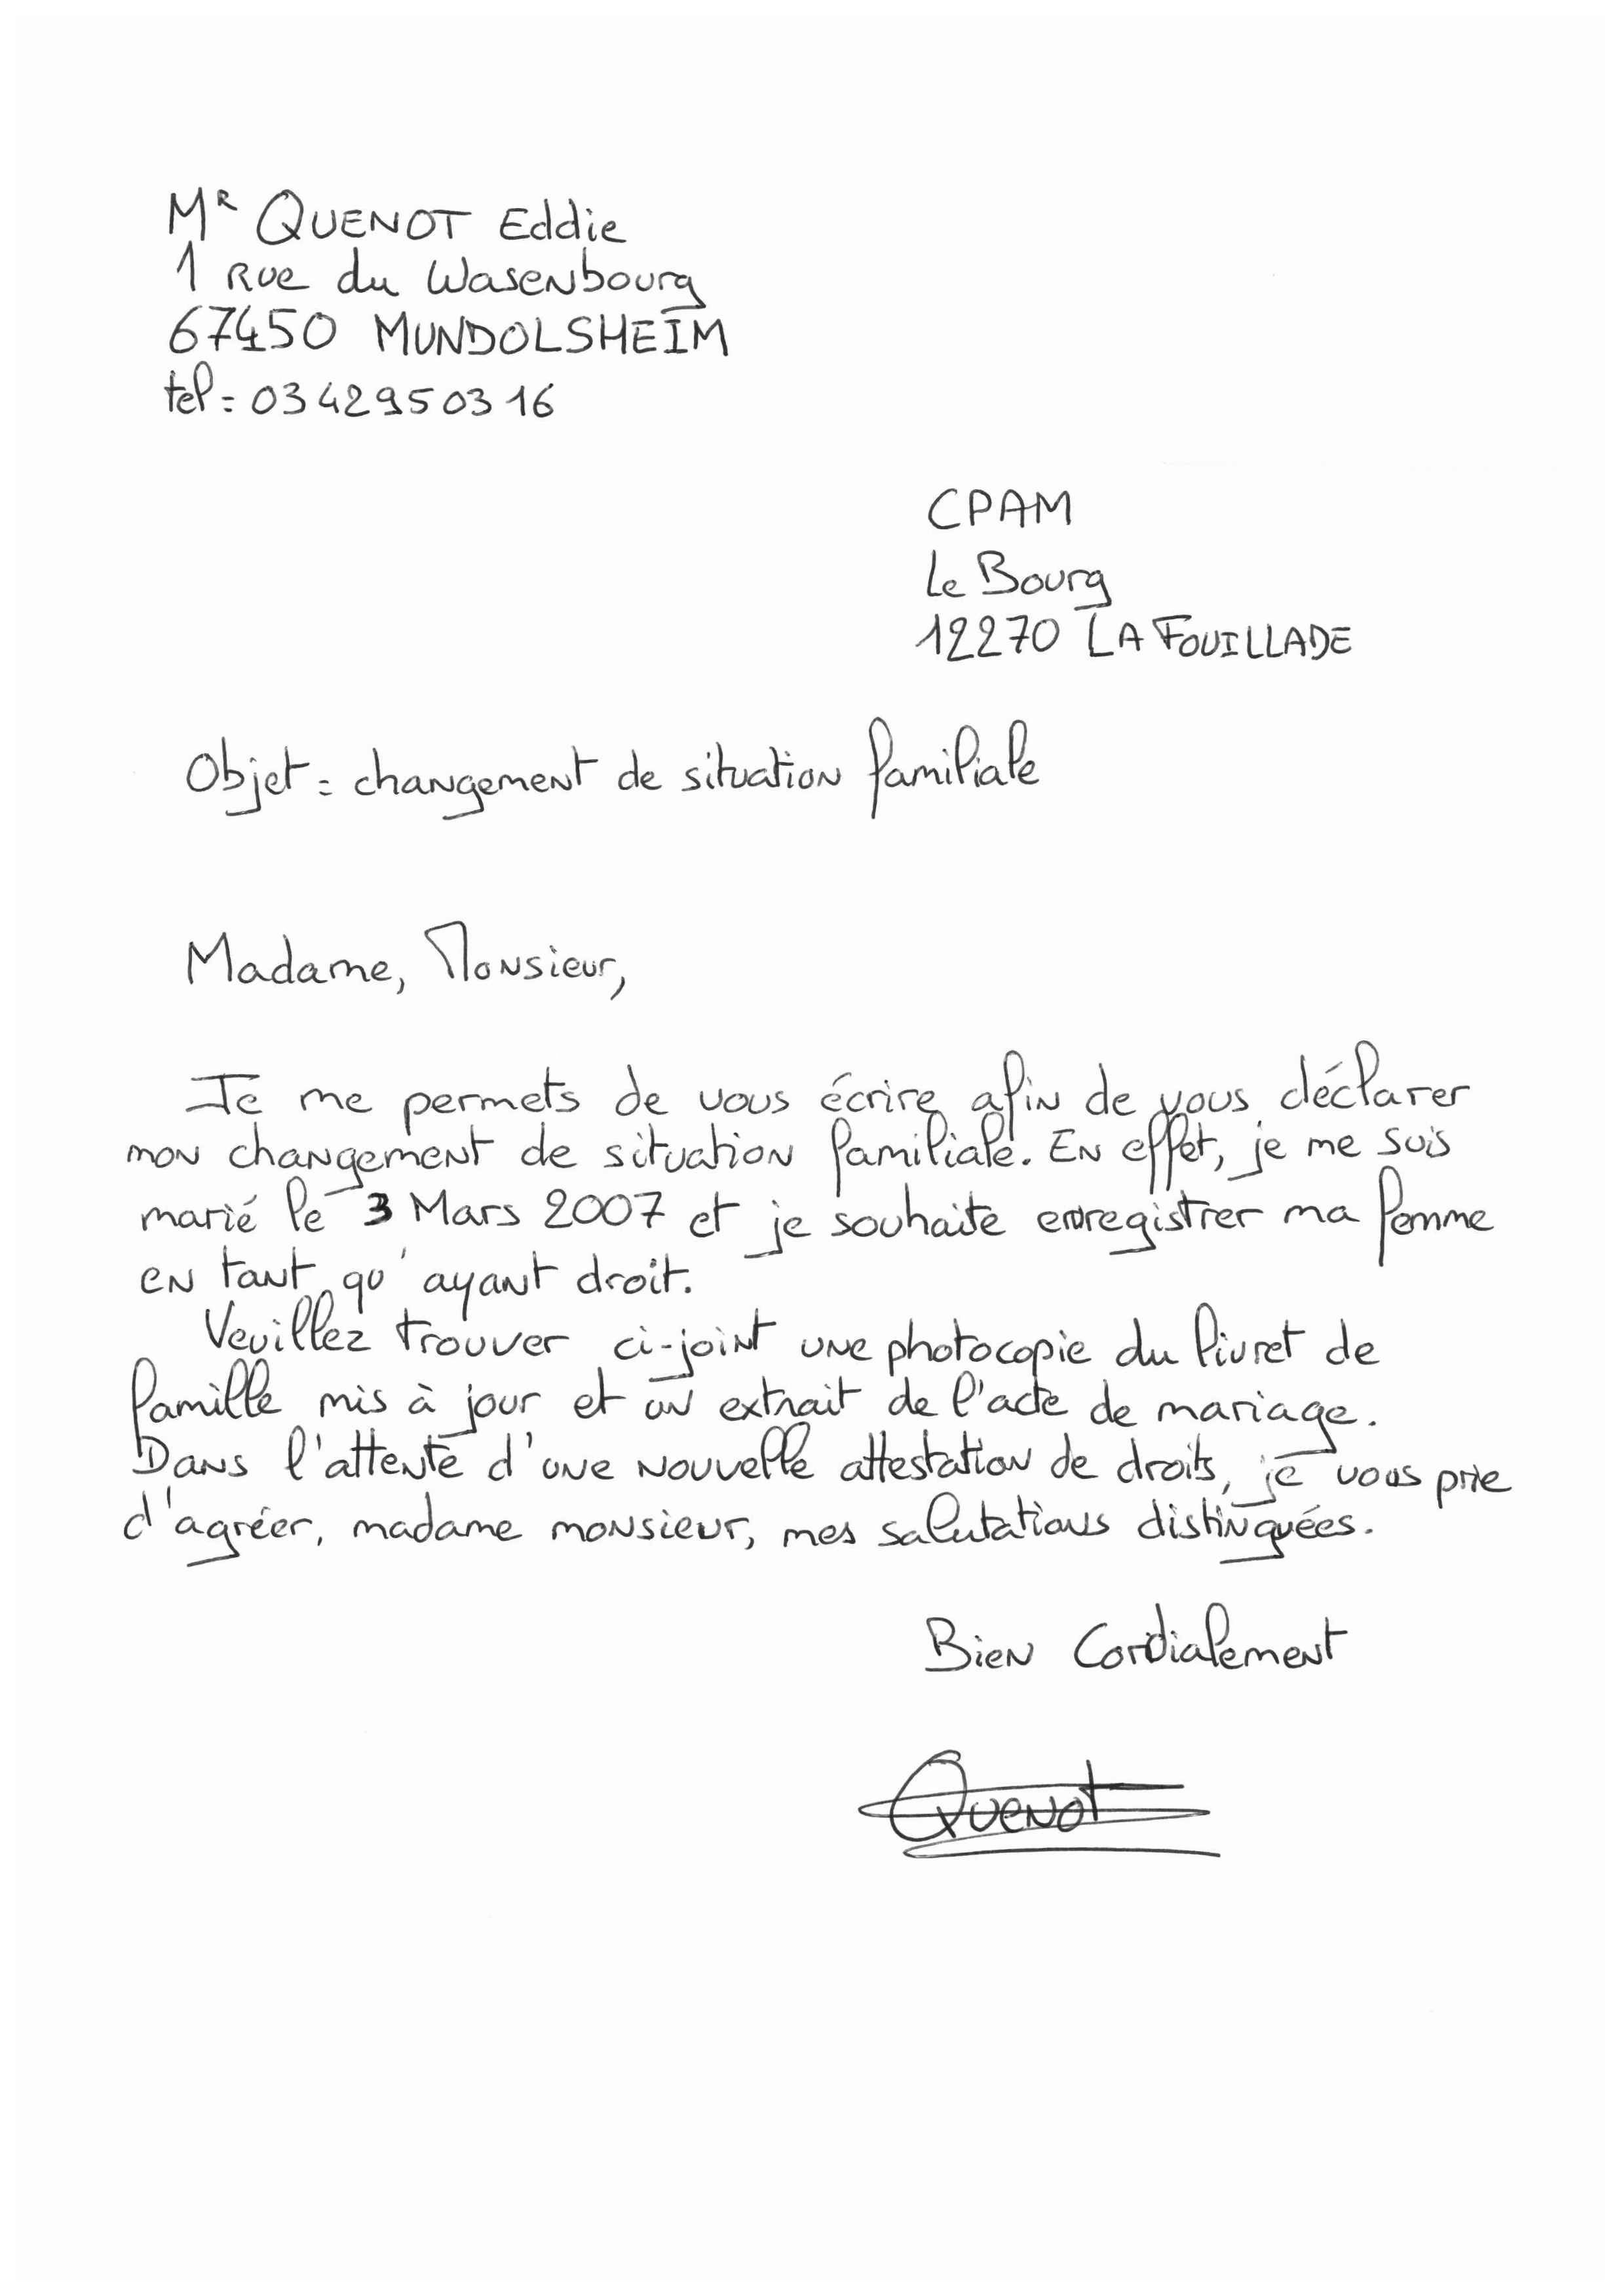 Mr QUENOT Eddie
1 Rue du Wasenbourg
67450 MUNDOLSHEIM
tel = 03 42 95 03 16
CPAM
Le Bourg
12270 LA FOUILLADE
Objet = changement de situation familiale
Madame, Monsieur,
Je me permets de vous écrire afin de vous déclarer
mon changement de situation familiale. En effet, je me suis
marié le 3 Mars 2007 et je souhaite enregistrer ma femme
en tant qu'ayant droit.
Veuillez trouver ci-joint une photocopie du livret de
famille mis à jour et un extrait de l'acte de mariage.
Dans l'attente d'une nouvelle attestation de droits, je vous prie
d'agréer, madame monsieur, mes salutations distinguées.
Bien Cordialement
Quenot